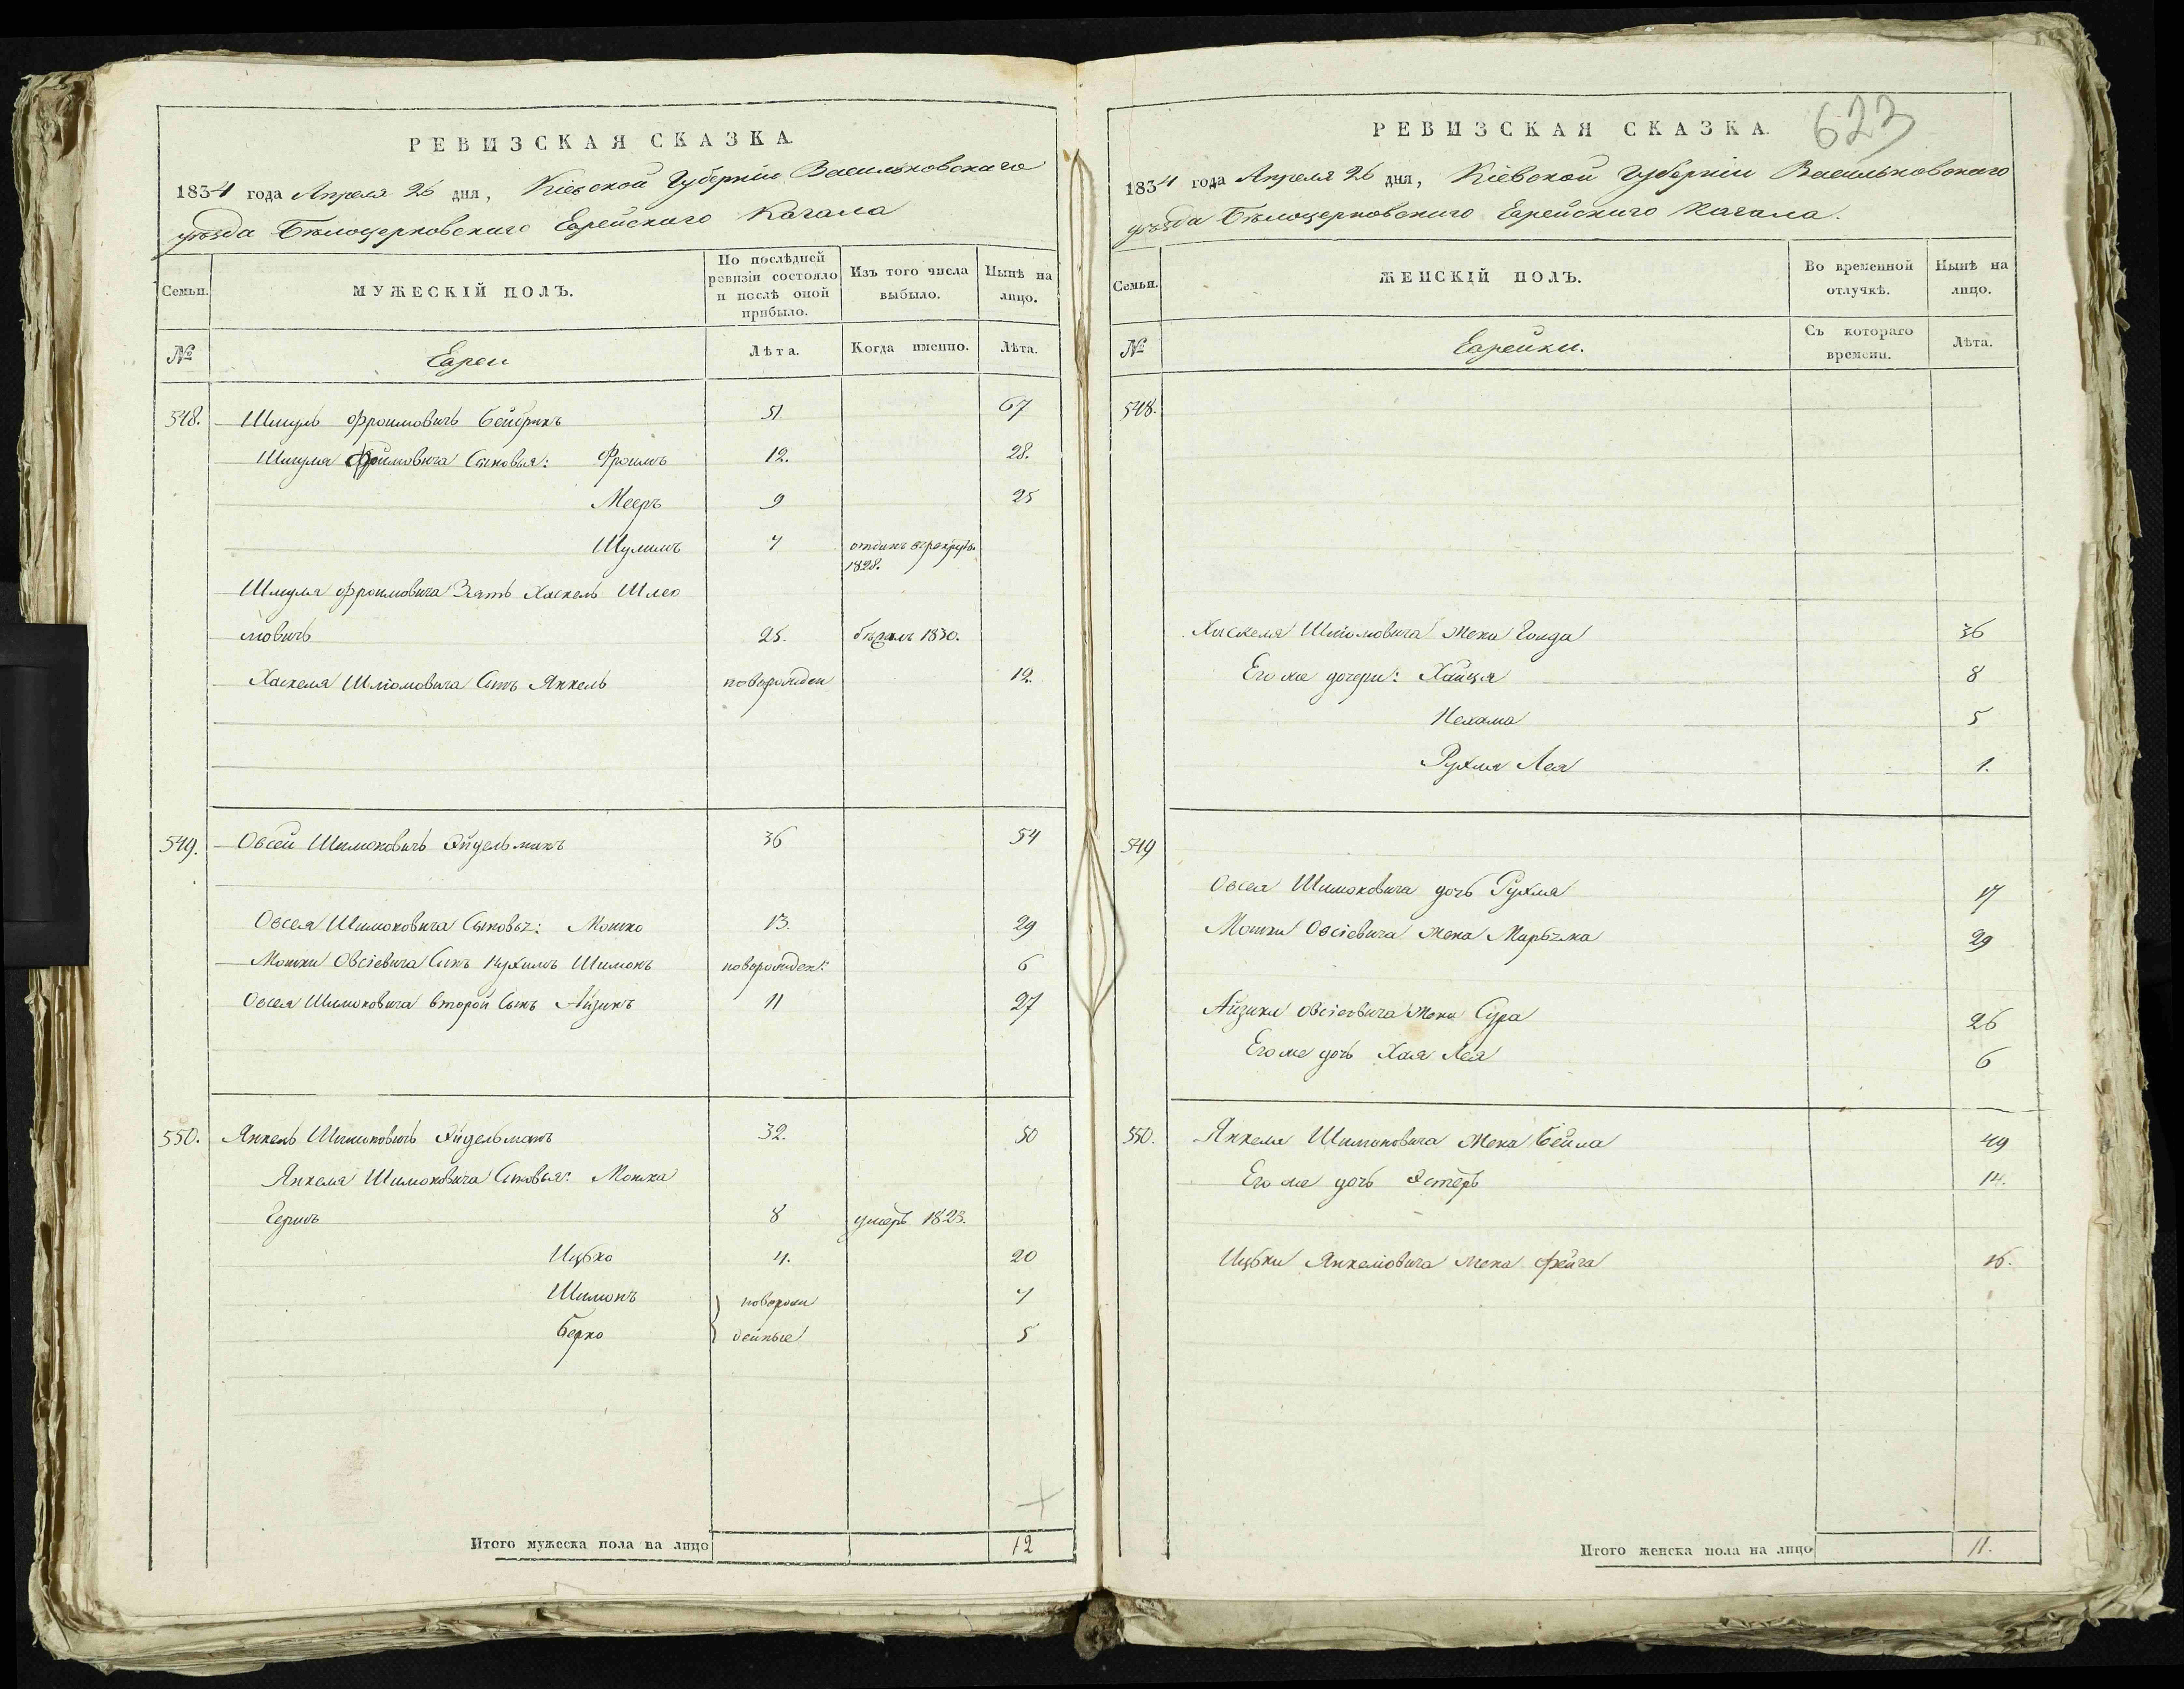 РЕВИЗСКАЯ СКАЗКА.
1834 года Апреля 26 дня, Кіевской Губерніи Васильковскаго
уѣзда Бѣлоцерковскаго Еврейскаго Кагала
Семьи.
МУЖЕСКІЙ ПОЛЪ.
По послѣдней
ревизіи состояло
и послѣ оной
прибыло.
Изъ того числа
выбыло.
Нынѣ на
лицо.
№
Евреи
Лѣта.
Когда именно.
Лѣта.
548. Шмуль Фроимовичь Бейбрикъ 51 67
Шмуля Фроимовича Сыновья: Фроимъ 12. 28.
Мееръ 9 25
Шулимъ 7 отданъ в рекруты
1828.
Шмуля Фроимовича Зять Хаскель Шлео
мовичь 25. бѣжалъ 1830.
Хаскеля Шліомовича Сынъ Янкель новорожден 12.
549. Овсей Шимоновичь Эйдельманъ 36 54
Овсея Шимоновича Сыновья: Мошко 13. 29
Мошки Овсіевича Сынъ Нухимъ Шимонъ новорожден: 6
Овсея Шимоновича второй Сынъ Айзикъ 11 27
550. Янкель Шимоновичь Эйдельманъ 32. 50
Янкеля Шимоновича Сыновья: Мошка
Гершъ 8 умеръ 1823.
Ицько 4. 20
Шимонъ новорож 7
Берко денные 5
Итого мужеска пола на лицо 12
623
РЕВИЗСКАЯ СКАЗКА.
1834 года Апреля 26 дня, Кіевской Губерніи Васильковскаго
уѣзда Бѣлоцерковскаго Еврейскаго Кагала.
Семьи.
ЖЕНСКІЙ ПОЛЪ.
Во временной
отлучкѣ.
Нынѣ на
лицо.
№
Еврейки.
Съ котораго
времени.
Лѣта.
548.
Хаскеля Шліомовича жена Голда 36
Его же дочери: Хайця 8
Нехама 5
Рухля Лея 1.
549
Овсея Шимоновича дочь Рухля 17
Мошки Овсіевича жена Марьяма 29
Айзика Овсіевича жена Сура 26
Его же дочь Хая Лея 6
550. Янкеля Шимоновича жена Бейла 49
Его же дочь Эстеръ 14.
Ицьки Янкеліовича жена Фейга 16.
Итого женска пола на лицо 11.